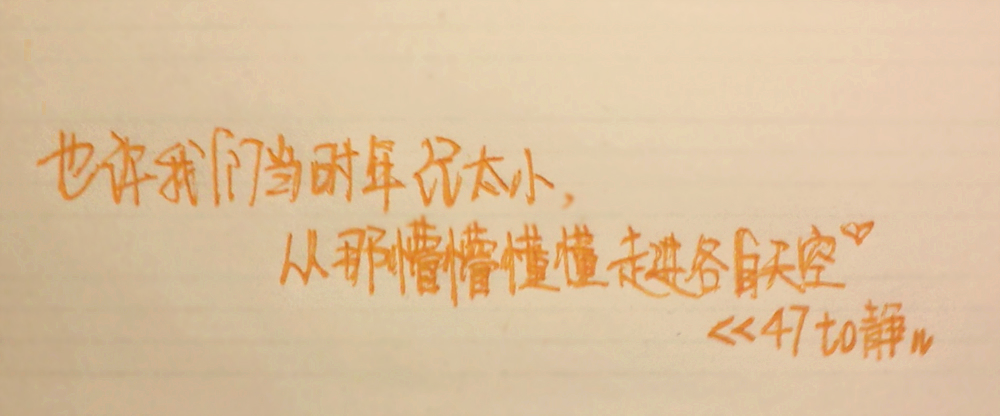 也许我们当时年纪太小，
从那懵懵懂懂走进各自天空♡
<<47to静"